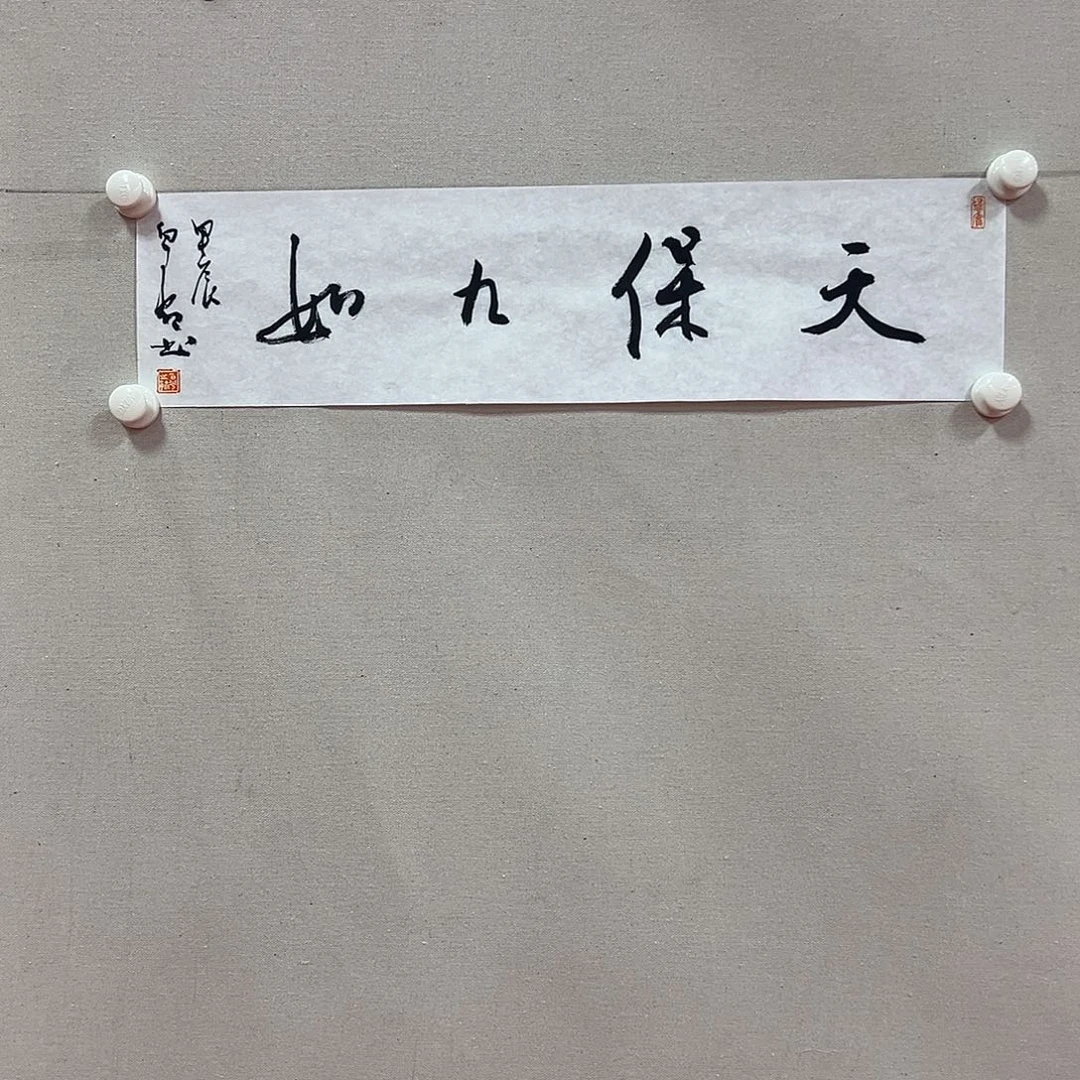 天保九如
甲辰
书